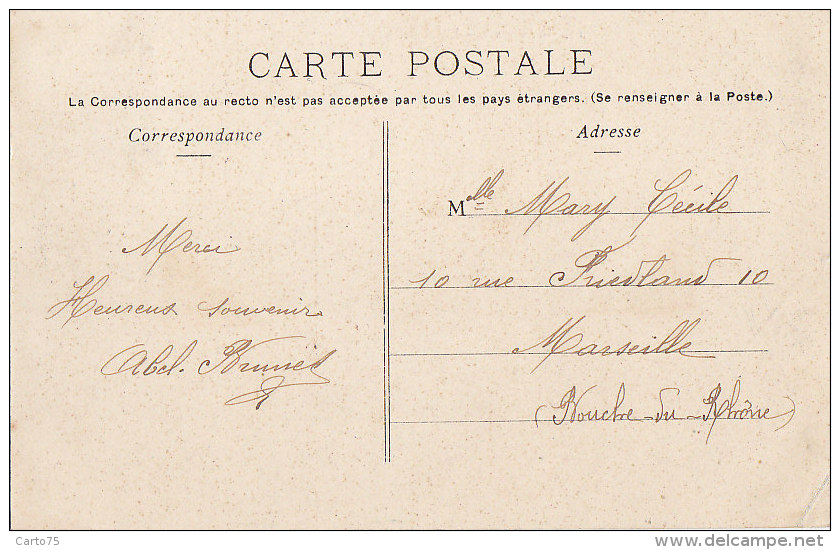 CARTE POSTALE
La Correspondance au recto n'est pas acceptée par tous les pays étrangers. (Se renseigner à la Poste.)
Correspondance
Merci
Heureux souvenir
Abel. Brunel
Adresse
Mlle Mary Cécile
10 rue Friedland 10
Marseille
(Bouche-du-Rhône)
Carto75
www.delcampe.net